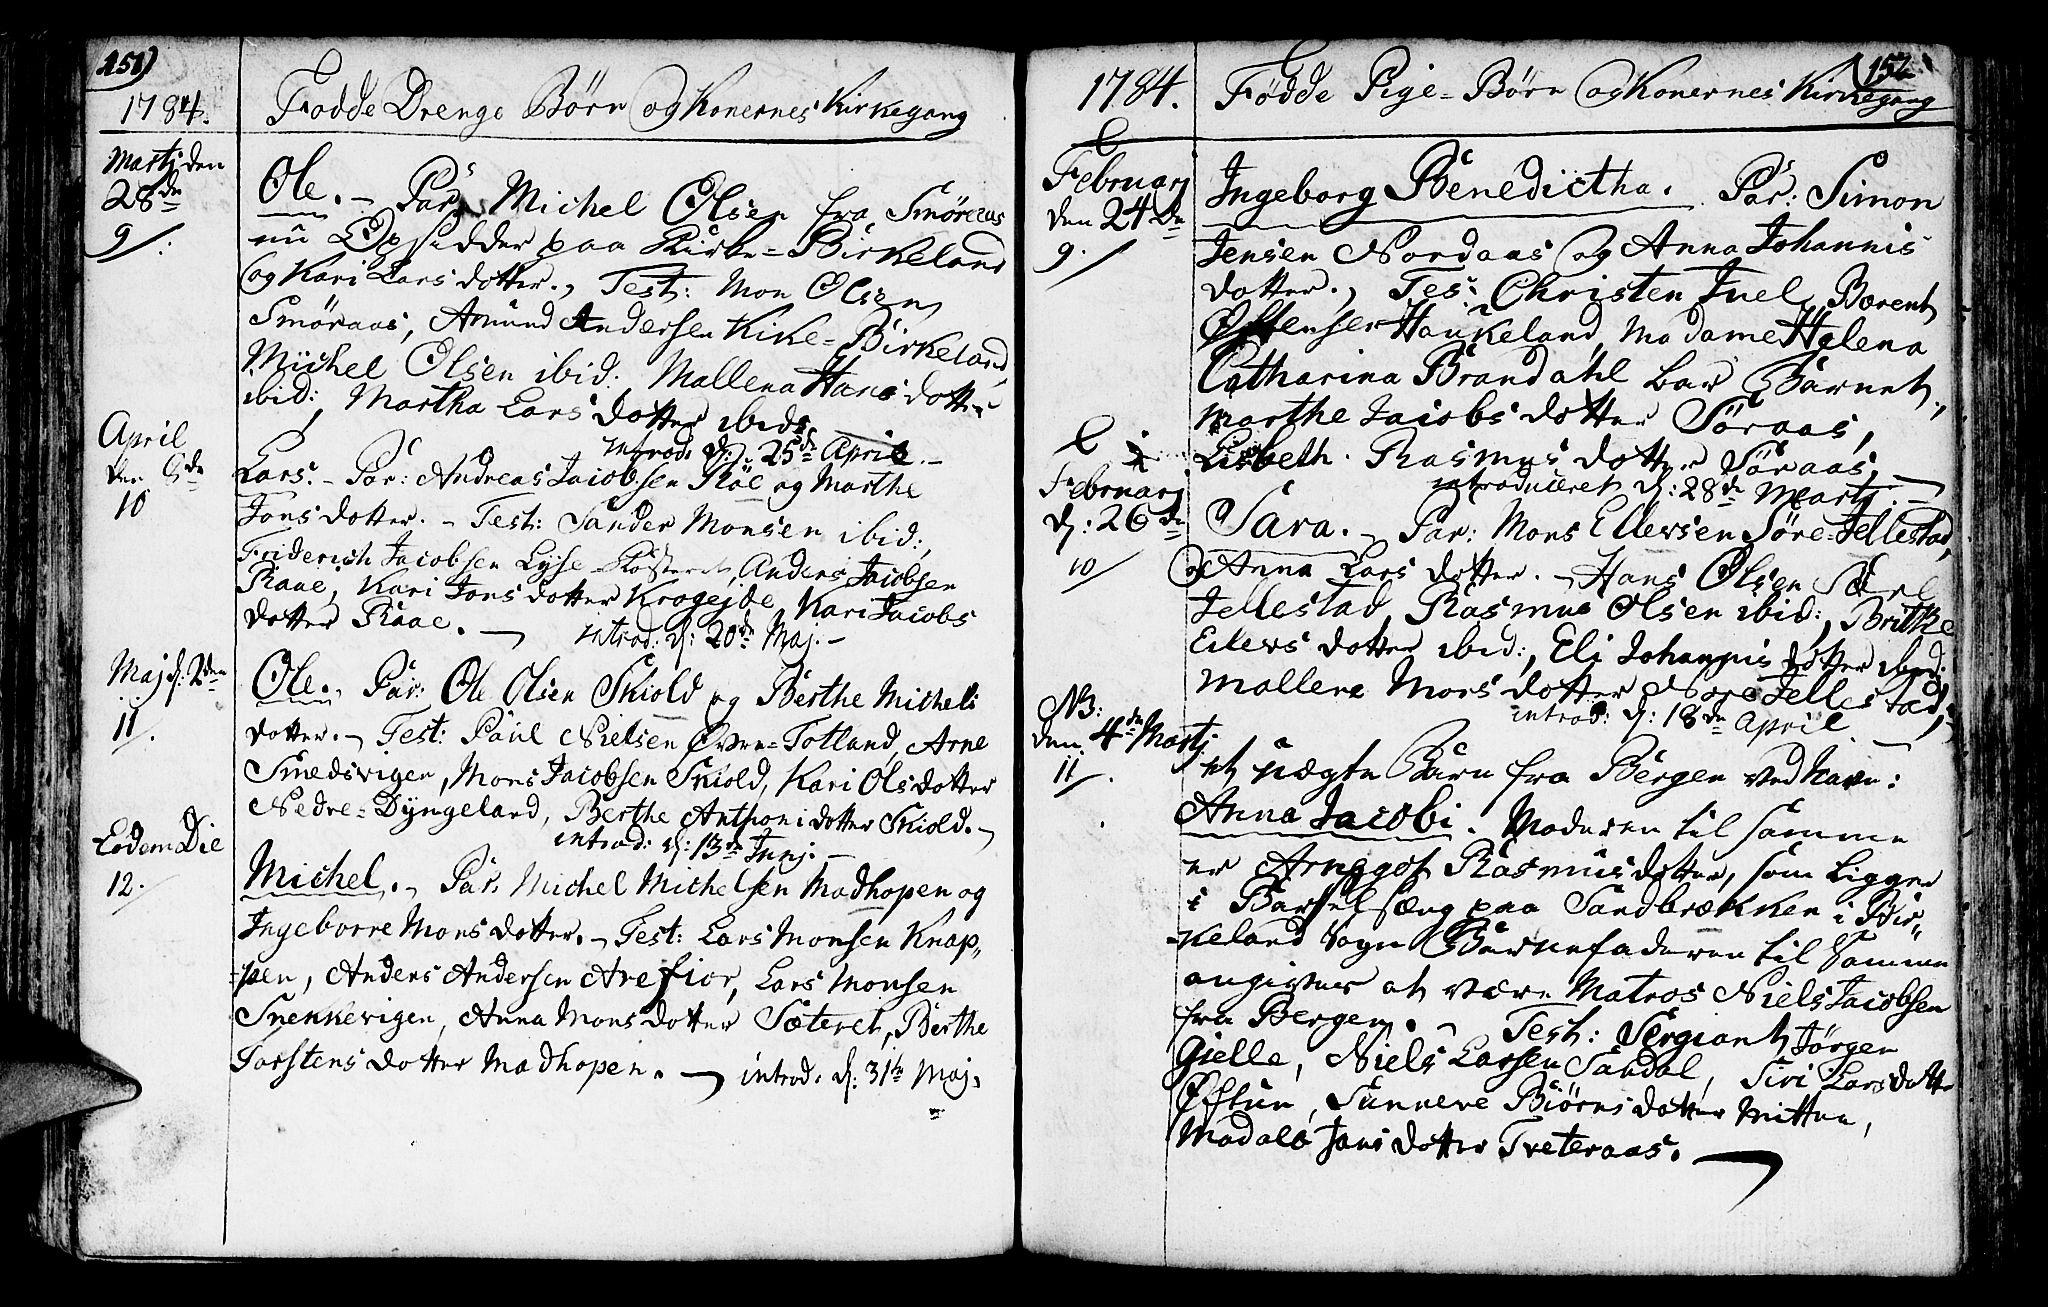 151)
1784.
Fødde Drenge Børn og Konernes Kirkegang
Martj den
28de
9/.
Ole. - Par: Michel Olsen fra Smøraas
nu Opsidder paa Kirke-Birkeland
og Kari Lars dotter., Test: Mon Olsen
Smøraas, Amund Andersen Kirke-Birkeland,
Michel Olsen ibid:, Mallena Hans dotter
ibid:, Martha Lars dotter ibid.
introd: d: 25de April. -
April
den
10
Lars. - Par: Andreas Jacobsen Råe og Marthe
Jons dotter. - Test: Sander Monsen ibid:,
Friderich Jacobsen Lyse Kloster, Anders Jacobsen
Raae, Kari Jons dotter Krogeide, Kari Jacobs
dotter Raae. -
introd: d: 20de Maj. -
Maj d: 2den
11/.
Ole. Par: Ole Olsen Skiold og Berthe Michels
dotter. - Test: Paul Nielsen Øvre-Totland, Arne
Smedsvigen, Mons Jacobsen Skiold, Kari Ols dotter
Nedre-Dyngeland, Berthe Anthoni dotter Skiold. -
introd: d: 13de Junj. -
Eodem Die
12.
Michel. - Par: Michel Michelsen Madhopen og
Ingeborre Mons dotter. - Test: Lars Monsen Knap-
-pen, Anders Andersen Arefior, Lars Monsen
Snekkevigen, Anna Mons dotter Sæteret, Berthe
Torstens dotter Madhopen. - introd: d: 31te Maj.
152
1784.
Fødde Pige-Børn og Konernes Kirkegang
Februarj
den 24de
9./
Ingeborg Benedictha. Par: Simon
Jensen Nordaas og Anna Johannis
dotter., Tes: Christen Juel, Berent
Øftensen Haukeland, Madame Helena
Catharina Brandahl bar Barnet,
Marthe Jacobs dotter Søraas,
Lisbeth Rasmus dotter Søraas,
introduceret d: 28de Martj. -
Februarj
d: 26de
10/
Sara. - Par: Mons Ellersen Søre-Jellestad,
og Anna Lars dotter. - Hans Olsen Søre
Jellestad, Rasmus Olsen ibid:, Brithe
Eilers dotter ibid:, Eli Johannis dotter ibid:
Mallene Mons dotter Nore Jellestad,
introd: d: 18de April. -
NB:
den 4de Martj
11/.
et uægte Barn fra Bergen ved Navn:
Anna Jacobi. Moderen til samme
er Arnggot Rasmusdotter, som ligger
i Barselsæng paa Sandbrækken i Bir-
-keland Sogn Barnefaderen til Samme
angives at være Matros Niels Jacobsen
fra Bergen. - Test: Sergiant Jørgen
Gielle, Niels Larsen Sandal, Siri Lars dotter
Øftun, Sunneve Biørns dotter Mitten,
Madale Jans dotter Treteraas. -